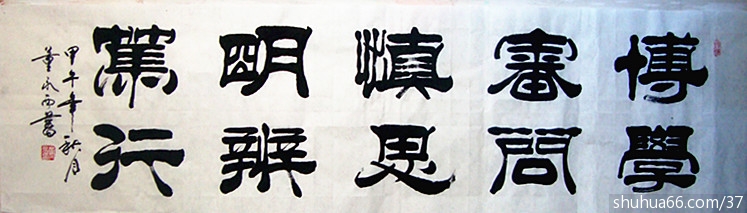 博學
審問
慎思
明辨
篤行
甲午年秋月
董永西書
shuhua66.com/37